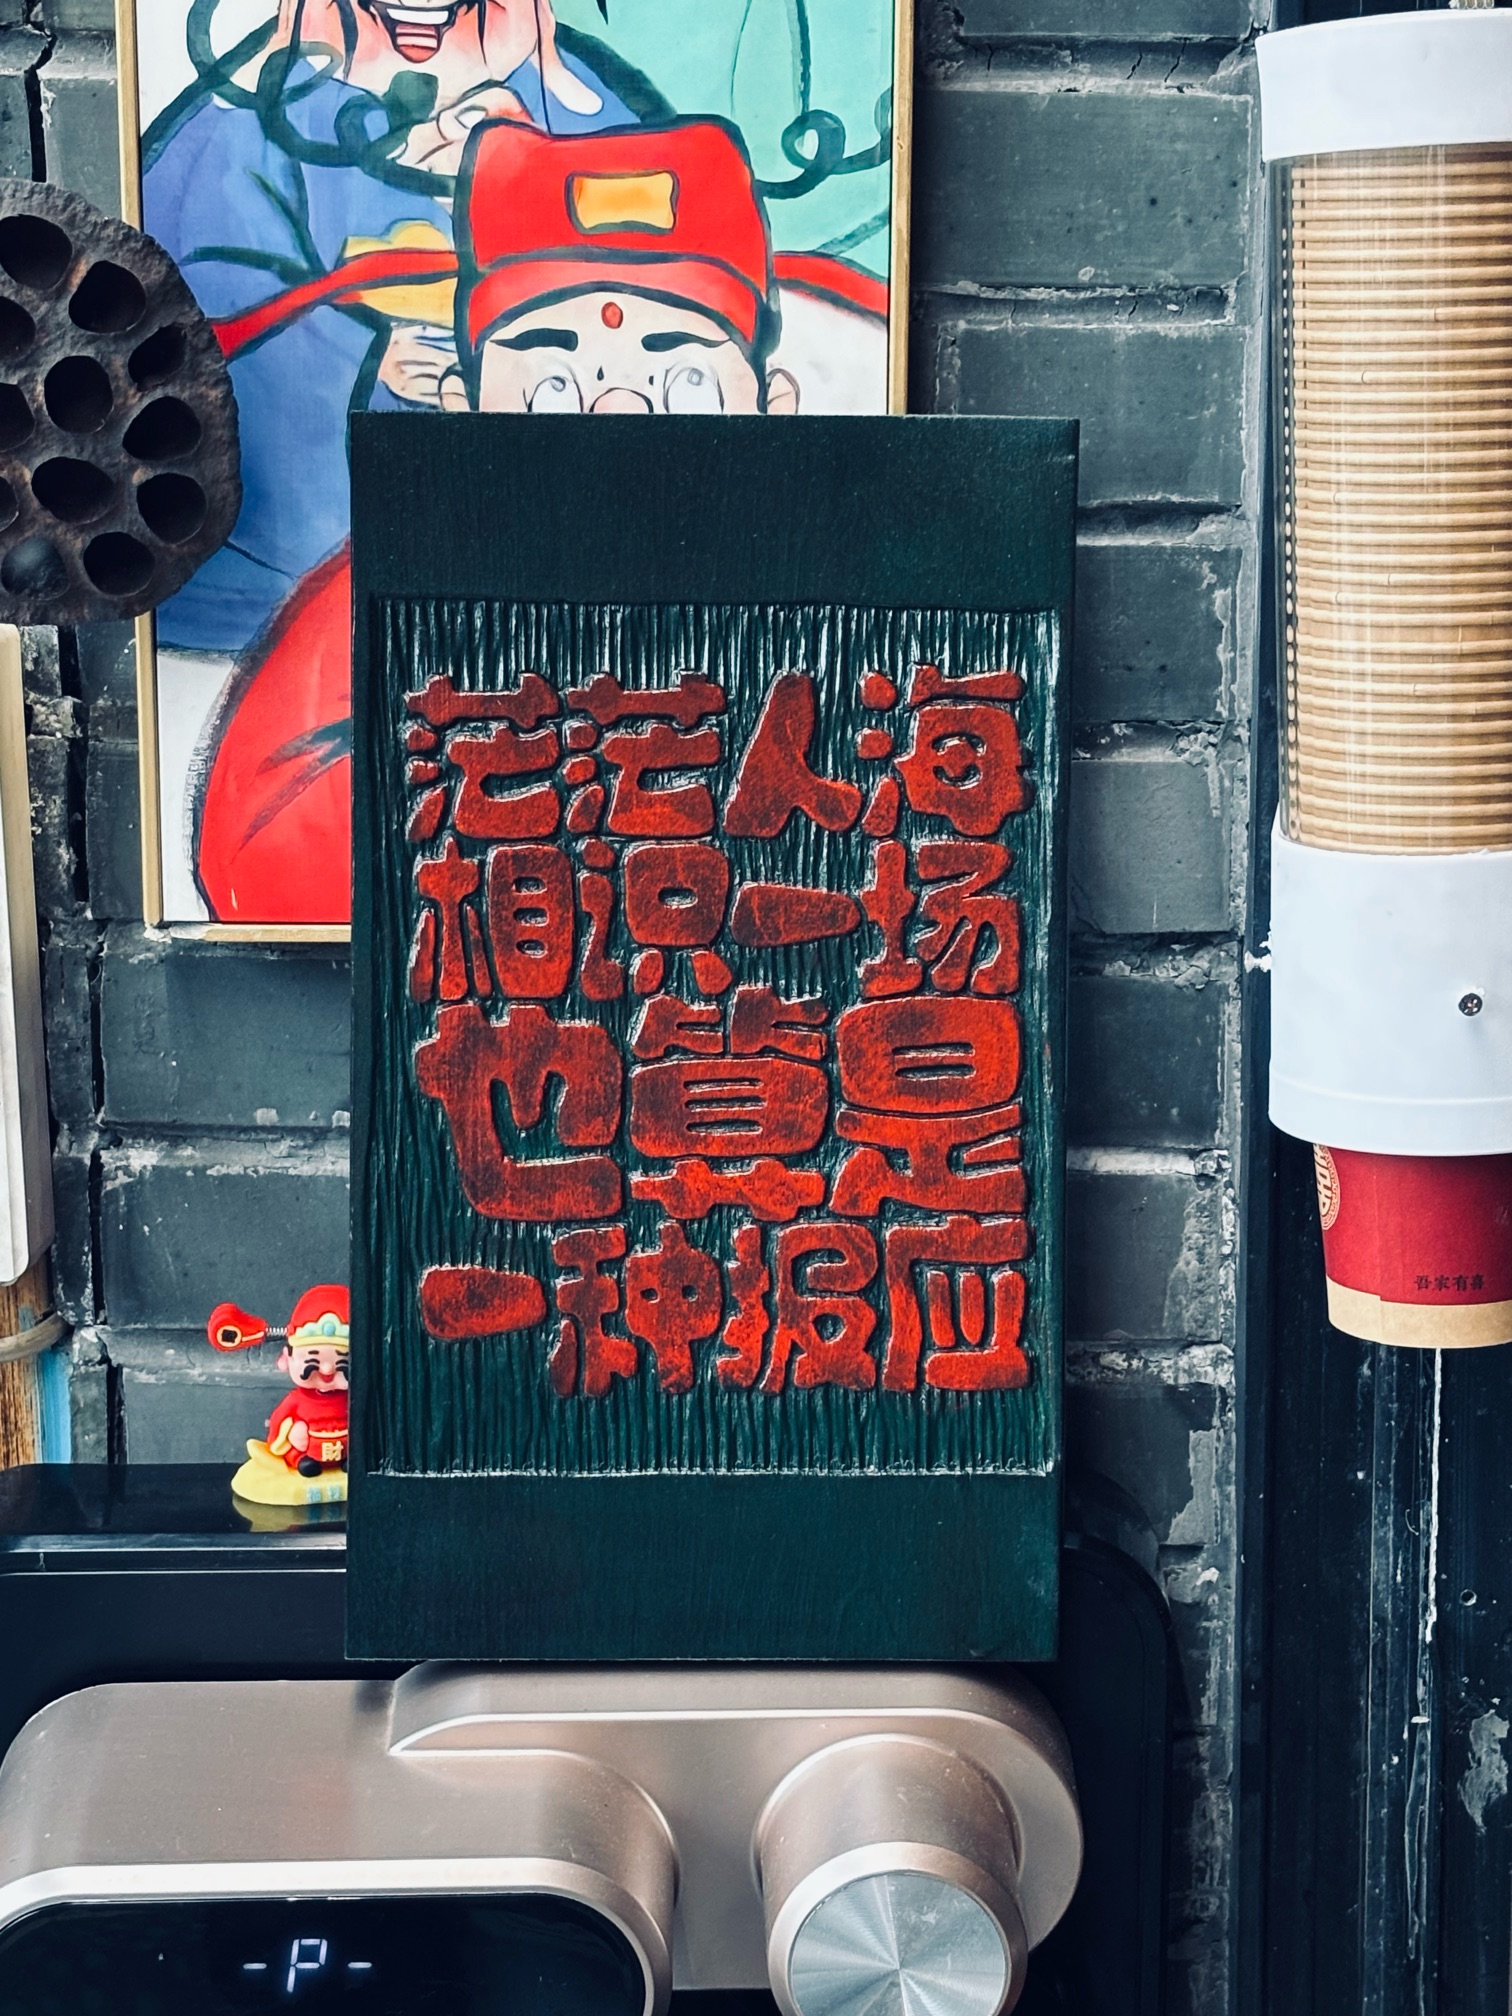 茫茫人海
相识一场
也算是
一种报应
吾家有喜
財
-P-